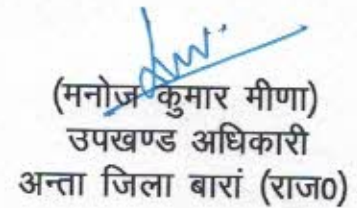 (मनोज कुमार मीणा)
उपखण्ड अधिकारी
अन्ता जिला बारां (राज0)